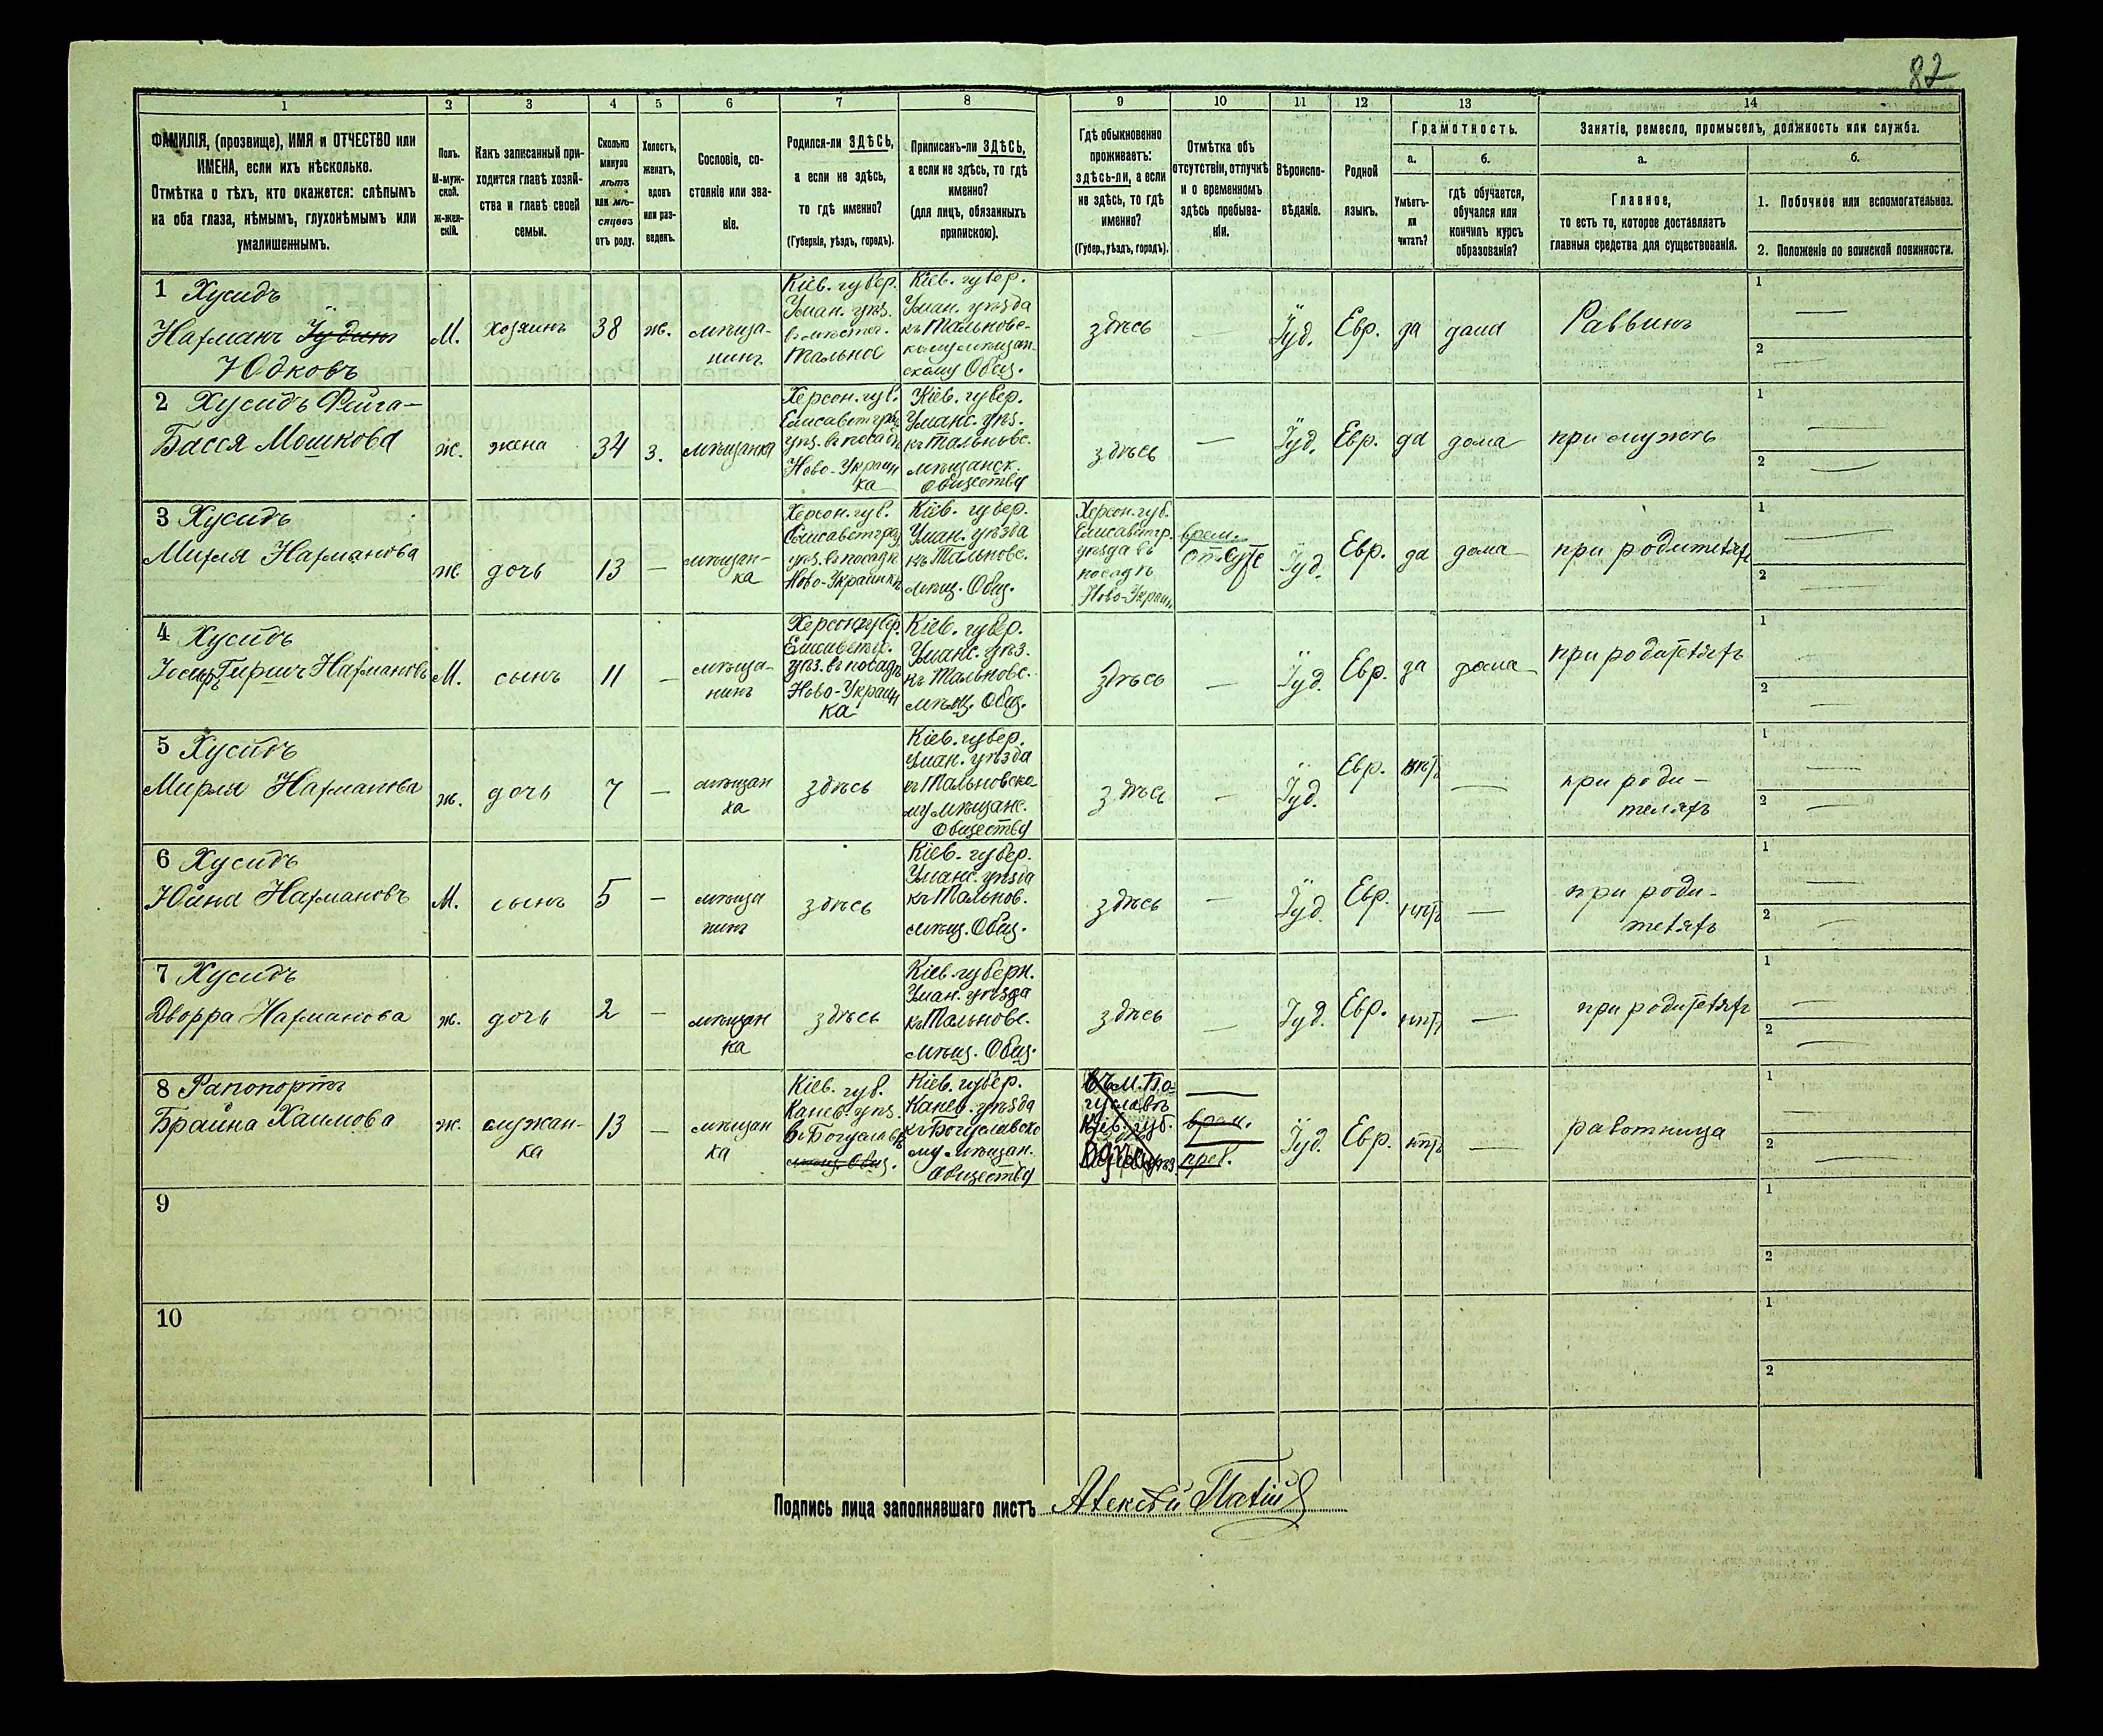 82
1
2
3
4
5
6
7
8
9
10
11
12
13
14
ФАМИЛІЯ, (прозвище), ИМЯ и ОТЧЕСТВО или
ИМЕНА, если ихъ нѣсколько.
Отмѣтка о тѣхъ, кто окажется: слѣпымъ
на оба глаза, нѣмымъ, глухонѣмымъ или
умалишеннымъ.
Полъ.
М-муж-
ской.
ж-жен-
скій.
Какъ записанный при-
ходится главѣ хозяй-
ства и главѣ своей
семьи.
Сколько
минуло
лѣтъ
или мѣ-
сяцевъ
отъ роду.
Холостъ,
женатъ,
вдовъ
или раз-
веденъ.
Сословіе, со-
стояніе или зва-
ніе.
Родился-ли ЗДѢСЬ,
а если не здѣсь,
то гдѣ именно?
(Губернія, уѣздъ, городъ).
Приписанъ-ли ЗДѢСЬ,
а если не здѣсь, то гдѣ
именно?
(для лицъ, обязанныхъ
припискою).
Гдѣ обыкновенно
проживаетъ:
здѣсь-ли, а если
не здѣсь, то гдѣ
именно?
(Губер., уѣздъ, городъ).
Отмѣтка объ
отсутствіи, отлучкѣ
и о временномъ
здѣсь пребыва-
ніи.
Вѣроиспо-
вѣданіе.
Родной
языкъ.
Грамотность.
а.
б.
Умѣетъ-
ли
читать?
гдѣ обучается,
обучался или
кончилъ курсъ
образованія?
Занятіе, ремесло, промыселъ, должность или служба.
а.
б.
Главное,
то есть то, которое доставляетъ
главныя средства для существованія.
1. Побочное или вспомогательное.
2. Положеніе по воинской повинности.
1 Хусидъ
Нахманъ Іудинъ
Юдковъ
М.
хозяинъ
38
ж.
мѣща-
нинъ
Кіев. губер.
Уман. уѣз.
в мѣстеч.
Тальное
Кіев. губер.
Уман. уѣзда
къ Тальновс-
кому мѣщан-
скому Общ.
здѣсь
—
Іуд.
Евр.
да
дома
Раввинъ
1 —
2 —
2 Хусидъ Фейга-
Басся Мошкова
ж.
жена
34
з.
мѣщанка
Херсон. губ.
Елисаветгр.
уѣз. в посадѣ
Ново-Украин
ка
Кіев. губер.
Уманс. уѣз.
къ Тальновс.
мѣщанск.
Обществу
здѣсь
—
Іуд.
Евр.
да
дома
при мужѣ
1 —
2 —
3 Хусидъ
Махля Нахманова
ж
дочь
13
—
мѣщан-
ка
Херсон. губ.
Елисаветград
уѣз. в посадѣ
Ново-Украинкѣ
Кіев. губер.
Уман. уѣзда
къ Тальновс.
мѣщ. Общ.
Херсон. губ.
Елисаветгр.
уѣзда въ
посадѣ
Ново-Украин.
врем.
отсутс
Іуд.
Евр.
да
дома
при родителяхъ
1 —
2 —
4 Хусидъ
Іосифъ Гершъ Нахмановъ
М.
сынъ
11
—
мѣща-
нинъ
Херсон. губер.
Елисаветг.
уѣз. в посадѣ
Ново-Украин
ка
Кіев. губер.
Уманс. уѣз.
къ Тальновс.
мѣщ. Общ.
здѣсь
—
Іуд.
Евр.
да
дома
при родителяхъ
1 —
2 —
5 Хусидъ
Мирля Нахманова
ж.
дочь
7
—
мѣщан
ка
здѣсь
Кіев. губер.
Уман. уѣзда
къ Тальновско-
му мѣщанс.
Обществу
здѣсь
—
Іуд.
Евр.
нѣтъ
—
при роди-
теляхъ
1 —
2 —
6 Хусидъ
Юйна Нахмановъ
М.
сынъ
5
—
мѣща
нинъ
здѣсь
Кіев. губер.
Уманс. уѣзда
къ Тальнов.
мѣщ. Общ.
здѣсь
—
Іуд.
Евр.
нѣтъ
—
при роди-
теляхъ
1 —
2 —
7 Хусидъ
Дворра Нахманова
ж.
дочь
2
—
мѣщан
ка
здѣсь
Кіев. губерн.
Уман. уѣзда
къ Тальновс.
мѣщ. Общ.
здѣсь
—
Іуд.
Евр.
нѣтъ
—
при родителяхъ
1 —
2 —
8 Рапопортъ
Брайна Хаимова
ж.
служан-
ка
13
—
мѣщан
ка
Кіев. губ.
Канев. уѣз.
в Богуславѣ
мѣщ. Общ.
Кіев. губер.
Канев. уѣзда
къ Богуславско
му мѣщан.
Обществу
въ м. Бо-
гуславѣ
Кіев. губ.
врем.
преб.
Іуд.
Евр.
нѣтъ
—
работница
1
2 —
9
1
2
10
1
2
Подпись лица заполнявшаго листъ Алексѣй